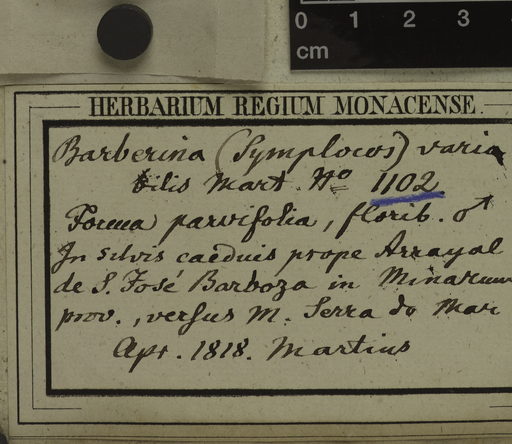 0 1 2 3
cm
HERBARIUM REGIUM MONACENSE.
Barberina (Symplocos) varia
bilis Mart. No 1102
Forma parvifolia, florib. ♂
In silvis caeduis prope Arrayal
de S. José Barboza in Minarum
prov., versus M. Serra do Mar
Apr. 1818. Martius